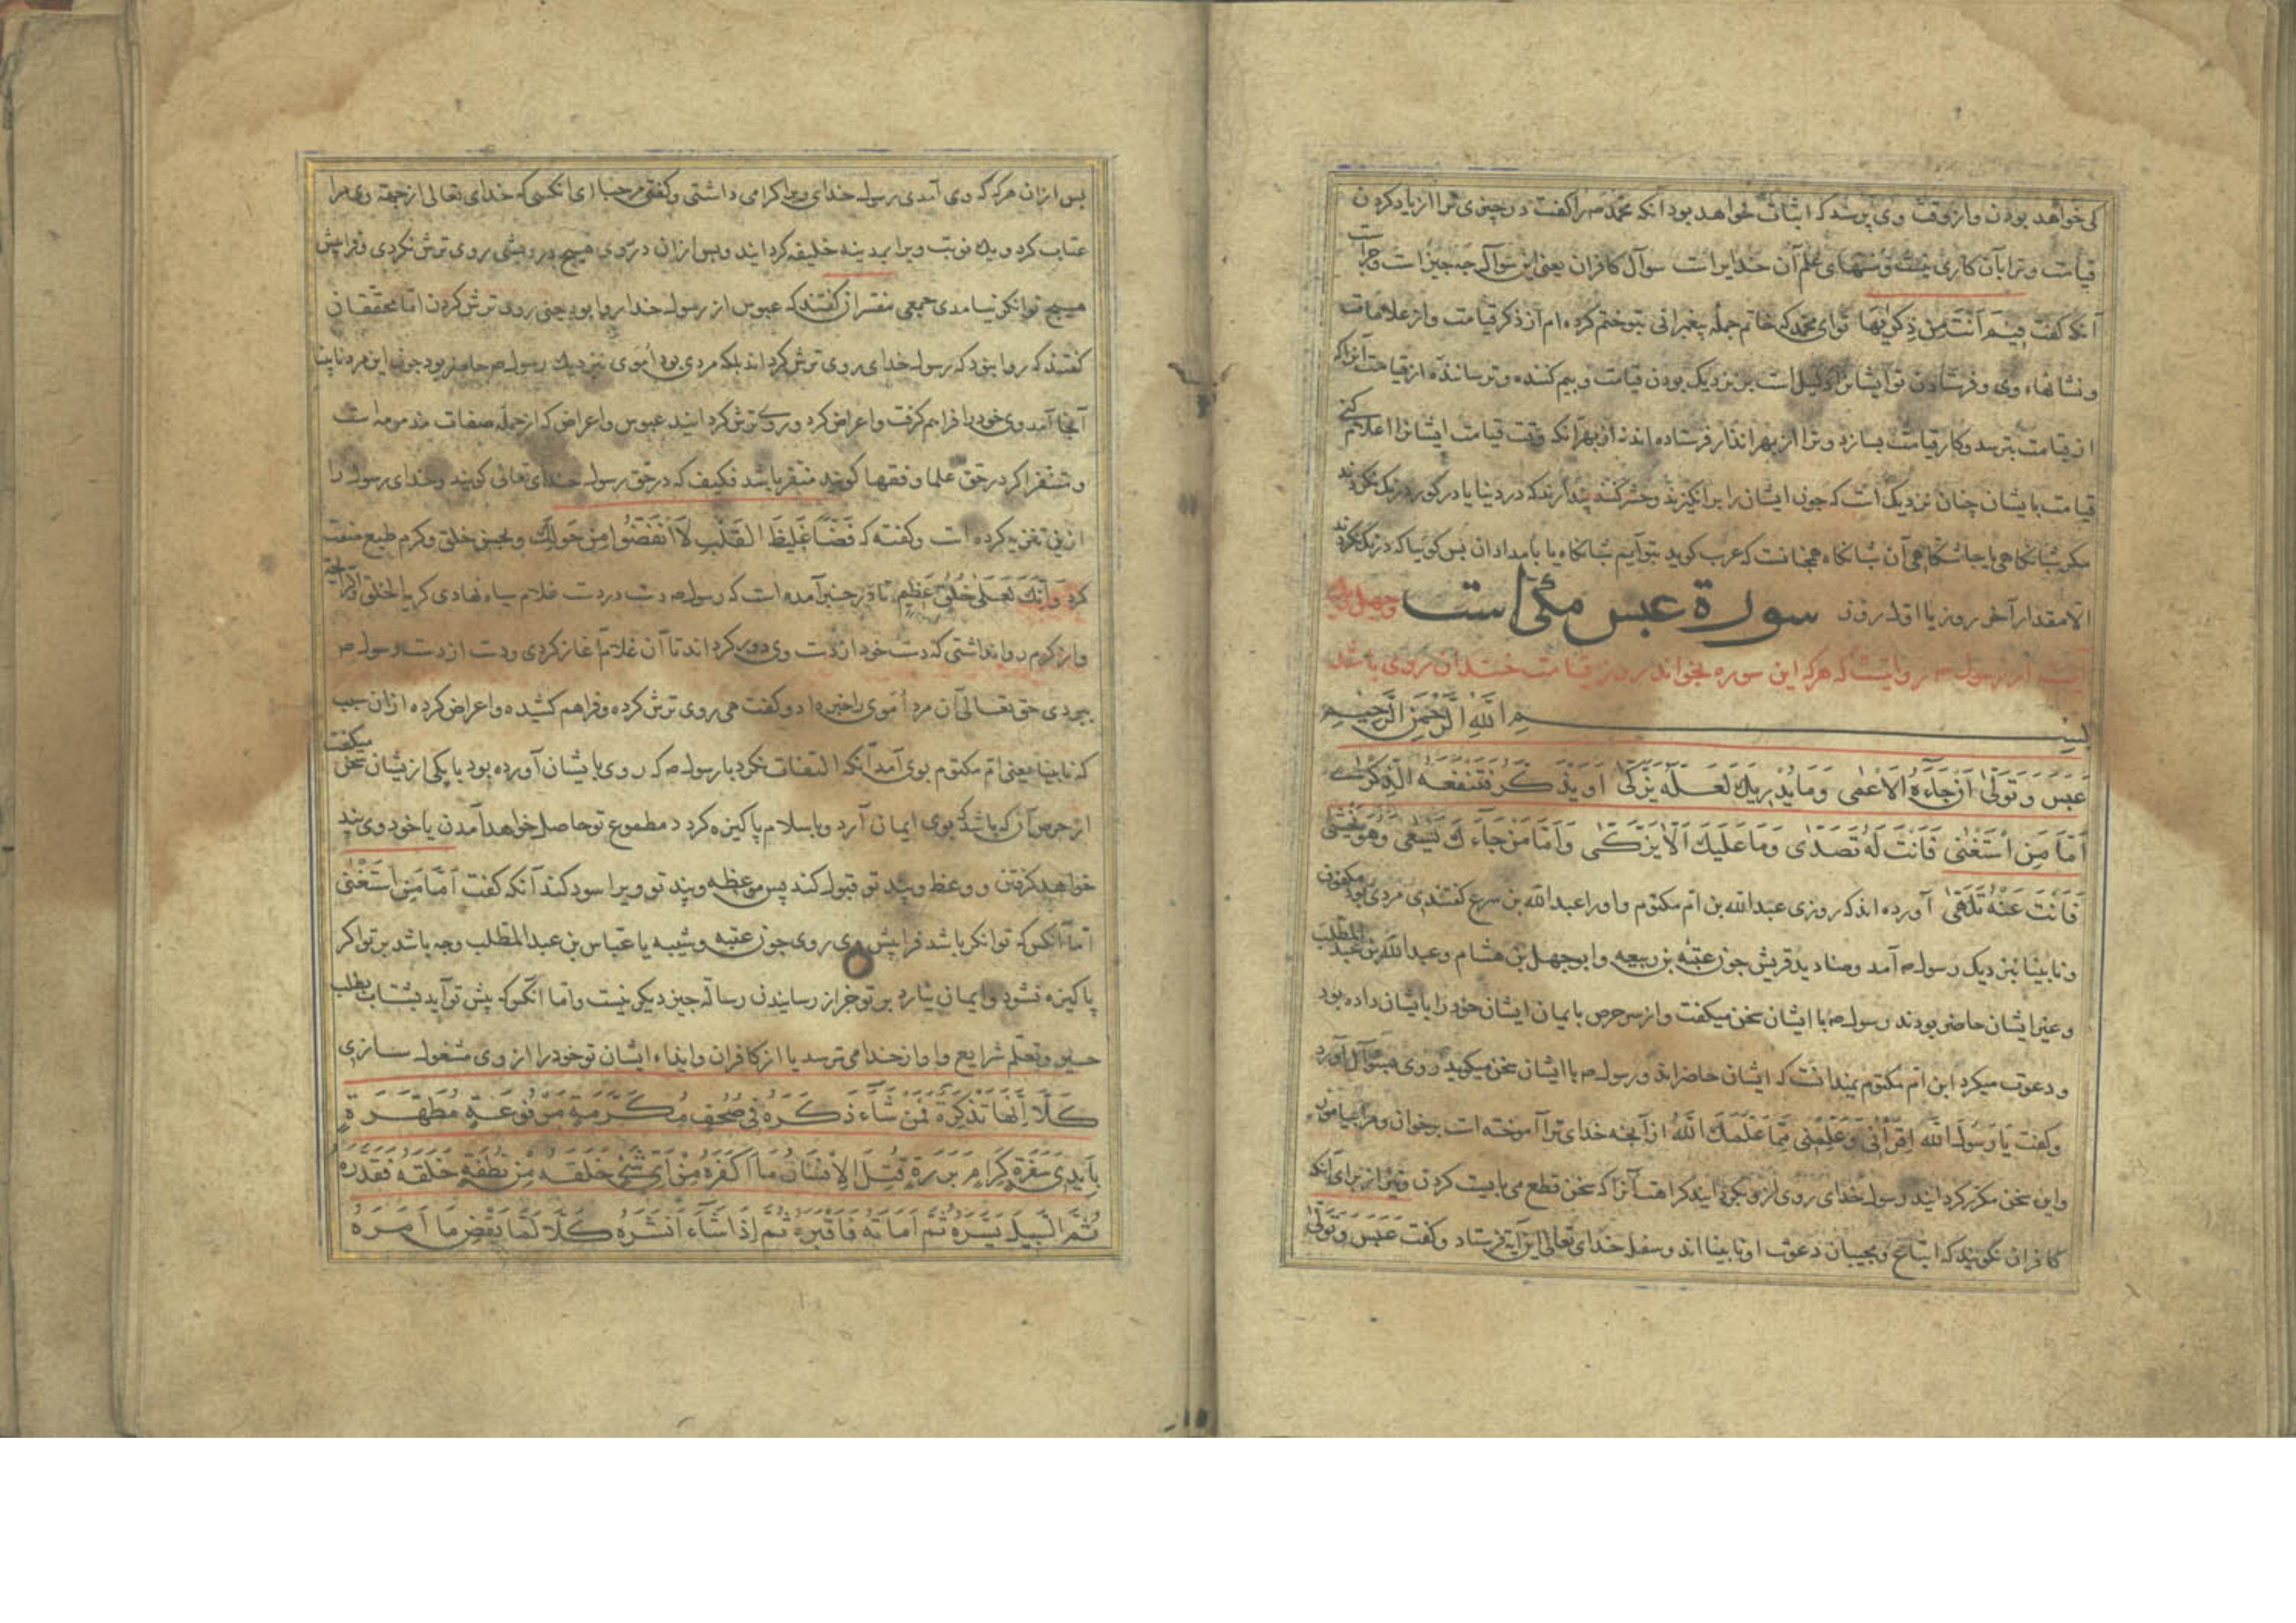 کی خواهد بودن و از وقت وی پرسند که ایشان نخواهد بود آنکه محمد صم را کفت در چیزی ترا از یاد کردن
قیامت و ترا بآن کاری نیست و منتهای علم آن خدایراست سوآل کافران یعنی این سوآل چه چیز است و جرا است
آنکه کفت فِیمَ اَنْتَ مِن ذِکْرٰیهَا توای محمد که خاتم جملهٔ پیغمبرانی بتو ختم کرده ام از ذکر قیامت و از علامات
و نشانهاء وی و فرستادن تو ایشانرا دلیل است بر نزدیک بودن قیامت و بیم کننده و ترساننده از قیامت آنراکه
از قیامت بترسد و کار قیامت بسازد و ترا از بهر انذار فرستاده اند نه از بهر آنکه وقت قیامت ایشانرا اعلام کنی
قیامت بایشان چنان نزدیک است که چون ایشان را برانکیزند و حشر کنند پندارند که در دنیا یا در کور درنک نکردند
مکر شبانکاهی یا چاشتکاهی آن شبانکاه همچنانست که عرب کوید بتو آییم شبانکاه یا بامدادان پس کوییا که درنک نکردند
الا مقدار آخر روز یا اول روز سورة عبس مکی است وچهل
از رسول صم روایتست که هرکه این سوره بخواند در روز قیامت خندان روی باشد
بسم الله الرحمن الرحیم
عَبَسَ وَتَوَلّٰی اَنْ جَآءَهُ الْاَعْمٰی وَمَا یُدْرِیكَ لَعَلَّهُ یَزَّکّٰی اَوْ یَذَّکَّرُ فَتَنْفَعَهُ الذِّکْرٰی
اَمَّا مَنِ اسْتَغْنٰی فَاَنْتَ لَهُ تَصَدّٰی وَمَا عَلَیْكَ اَلَّا یَزَّکّٰی وَاَمَّا مَنْ جَآءَكَ یَسْعٰی وَهُوَ یَخْشٰی
فَاَنْتَ عَنْهُ تَلَهّٰی آورده اند که روزی عبدالله بن ام مکتوم و او را عبدالله بن سرع کفتندی مردی بود مکفوف
و نابینا بنزدیک رسول صم آمد و صنادید قریش چون عتبه بن ربیعه و ابوجهل بن هشام و عبدالله بن عبدالمطلب
و غیر ایشان حاضر بودند رسول صم با ایشان سخن میکفت و از سر حرص بایمان ایشان خود را بایشان داده بود
و دعوت میکرد ابن ام مکتوم نمیدانست که ایشان حاضراند و رسول صم با ایشان سخن میکوید روی بسوآل آورد
و کفت یَا رَسُولَ اللّٰهِ اِقْرَأْنِی وَعَلِّمْنِی مِمَّا عَلَّمَكَ اللّٰهُ از آنچه خدای ترا آموخته است برخوان و مرا بیاموز
و این سخن مکرر کردانید رسول خدای روی از و بکردانید کراهت آنرا که سخن قطع می بایست کردن و نیز از برای آنکه
کافران نکویند که اتباع و مجیبان دعوت او نابینا اند و سفل خدای تعالی این آیة فرستاد و کفت عَبَسَ وَتَوَلّٰی
پس از آن هرکه که وی آمدی رسول خدای ویرا کرامی داشتی و کفتی مرحبا ای آنکسی که خدای تعالی از جهة وی مرا
عتاب کرد و یک نوبت ویرا بمدینه خلیفه کردانید و پس از آن در روی هیچ درویشی روی ترش نکردی و فرا پیش
هیچ توانکر نیامدی جمعی مفسران کفتند که عبوس از رسول خدا روا بود یعنی روی ترش کردن اما محققان
کفتند که روا نبود که رسول خدای روی ترش کرداند بلکه مردی بود اموی بنزدیک رسول صم حاضر بود چون این مرد نابینا
آنجا آمد وی خود را فراهم کرفت و اعراض کرد و روی ترش کردانید عبوس و اعراض که از جملهٔ صفات مذمومه است
و متنفر اکر در حق علما و فقها کویند منفر باشد فکیف که در حق رسول خدای تعالی کویند و خدای رسول را
ازین تنزیه کرده است و کفته که فَظًّا غَلِیظَ الْقَلْبِ لَانْفَضُّوا مِنْ حَوْلِكَ و بحسن خلق و کرم طبع صفت
کرد وَاِنَّكَ لَعَلٰی خُلُقٍ عَظِیمٍ تا در خبر آمده است که رسول صم دست در دست غلام سیاه نهادی کریم الخلق
و از کرم روا نداشتی که دست خود از دست وی دور کرداند تا آن غلام آغاز کردی و دست از دست رسول صم
بیرون حق تعالی آن مرد اموی را خبر داد و کفت هی روی ترش کرده و فراهم کشیده و اعراض کرده از آن سبب
که نابینا یعنی ام مکتوم بوی آمد آنکه التفات نکرد با رسول صم که روی بایشان آورده بود با یکی ازیشان سخن میکفت
از حرص آن که باشد که بوی ایمان آرد و باسلام پاکیزه کردد مطموع تو حاصل خواهد آمدن یا خود وی پند
خواهد کرفتن و وعظ و پند تو قبول کند پس موعظه و پند تو ویرا سود کند آنکه کفت اَمَّا مَنِ اسْتَغْنٰی
اما آنکس که توانکر باشد فرا پیش وی روی چون عتبه و شیبه یا عباس بن عبدالمطلب و چه باشد بر تو اکر
پاکیزه نشود و ایمان نیارد بر تو جز از رسانیدن رسالة چیز دیکر نیست و اما آنکس که پیش تو آید بشتاب بطلب
و تعلم شرایع و او از خدا می ترسد یا از کافران و ایذاء ایشان تو خود را از وی مشغول سازی
کَلَّا اِنَّهَا تَذْکِرَةٌ فَمَنْ شَآءَ ذَکَرَهُ فِی صُحُفٍ مُکَرَّمَةٍ مَرْفُوعَةٍ مُطَهَّرَةٍ
بِاَیْدِی سَفَرَةٍ کِرَامٍ بَرَرَةٍ قُتِلَ الْاِنْسَانُ مَا اَکْفَرَهُ مِنْ اَیِّ شَیْءٍ خَلَقَهُ مِنْ نُطْفَةٍ خَلَقَهُ فَقَدَّرَهُ
ثُمَّ السَّبِیلَ یَسَّرَهُ ثُمَّ اَمَاتَهُ فَاَقْبَرَهُ ثُمَّ اِذَا شَآءَ اَنْشَرَهُ کَلَّا لَمَّا یَقْضِ مَا اَمَرَهُ